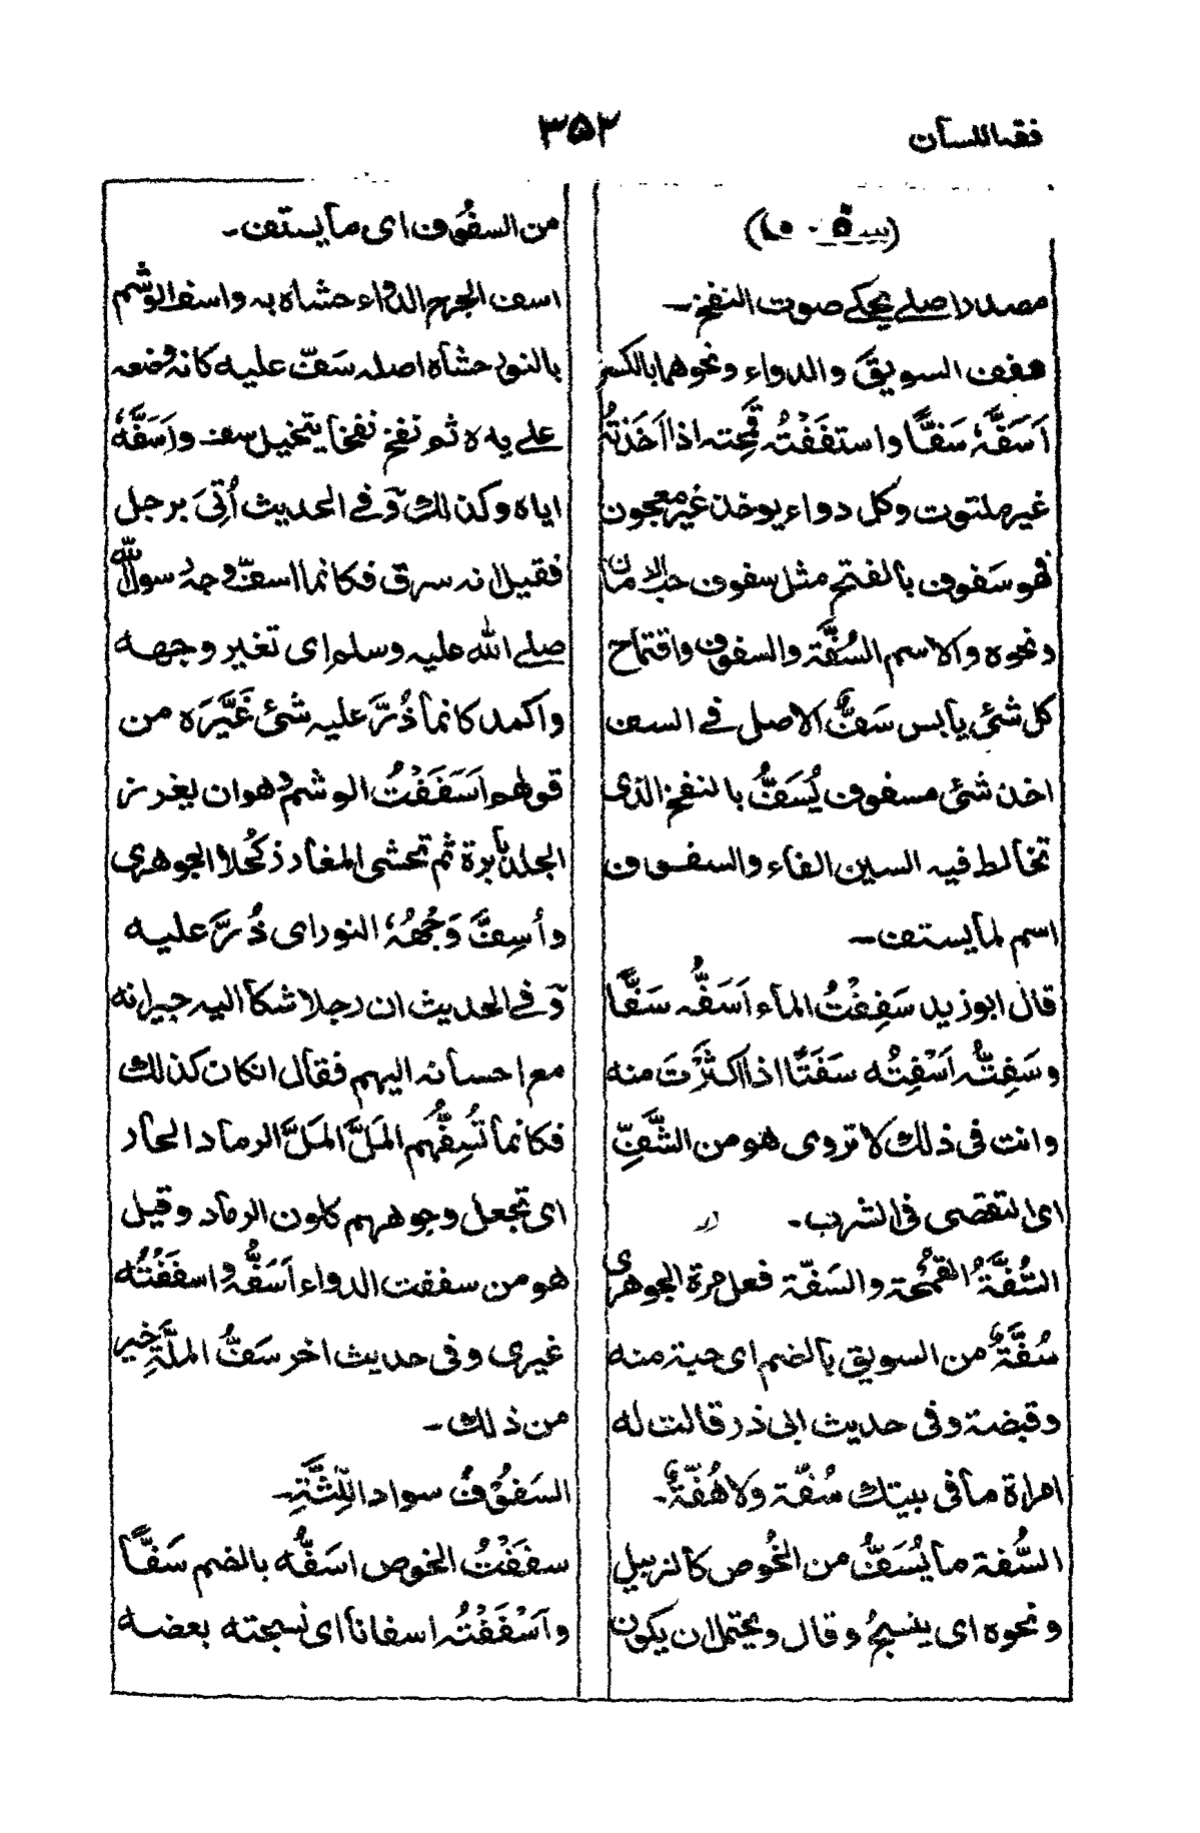 فقه اللسان
۳۵۲
مصدر اصلے يحكے صوت النفخ۔
سفف السويقَ والدواء ونحوهما بالكسر
اَسَفَّهٗ سَفًّا واستفَفْتُه قَمِحته اذا اَخَذتَهٗ
غير ملتوت وكل دواء يوخذ غير معجون
فهو سَفوف بالفتح مثل سفوف حب الرمان
ونحوه والاسم السُفَّة والسفوف واقتماح
كل شئ يابس سَفٌّ الاصل فے السف
اخذ شئ مسفوف يُسَفُّ بالنفخ الذى
تخالط فيه السين الفاء والسفوف
اسم لما يستف۔
قال ابوزيد سَفِفْتُ الماء اَسَفُّه سَفًّا
وسَفِتُّه اَسْفِتُه سَفَتًا اذا اكثَرْتَ منه
وانت فى ذلك لا تروى هو من الشَّفِّ
اى التقصى فى الشرب۔
السُّفَّةُ القُمْحة والسَفّة فعل مرة الجوهرى
سُفَّةٌ من السويق بالضم اى حبة منه
وقبضة وفى حديث ابى ذر قالت له
امراة ما فى بيتك سُفّة ولا هُفّةٌ۔
السُّفة ما يُسَفُّ من الخُوص كالزبيل
ونحوه اى ينسجُ وقال ويحتمل ان يكون
من السفُوف اى ما يستف۔
اسف الجرح الدواء حشاه به واسف الوشم
بالنور حشاه اصله سَفّ عليه كانه وضعه
علے يده ثم نفخ نفخا يتخيل سف واَسَفَّهٗ
اياه وكذلك وفے الحديث اُتِىَ برجل
فقيل انه سرق فكانما اسفّ وجهُ رسول الله
صلے الله عليه وسلم اى تغير وجهه
واكمد كانما ذُرَّ عليه شئ غَيَّرَه من
قولهم اَسَفَفْتُ الوشم وهو ان يغرز
الجلد بابرة ثم تحشى المغارز كُحلا الجوهرى
واُسِفَّ وَجْهُهٗ النور اى ذُرَّ عليه
وفے الحديث ان رجلا شكا اليه جيرانه
مع احسانه اليهم فقال ان كان كذلك
فكانما تُسِفُّهم المَلَّ المَلَّ الرماد الحار
اى تجعل وجوههم كلون الرماد وقيل
هو من سففت الدواء اَسَفُّه واسفَفْتُه
غيرى وفى حديث اخر سَفُّ المَلَّةِ خير
من ذلك۔
السَفُوْفُ سواد اللِّثَّةِ۔
سفَفْتُ الخوص اسَفُّه بالضم سَفًّا
واَسْفَفْتُه اسفافا اى نسجته بعضه